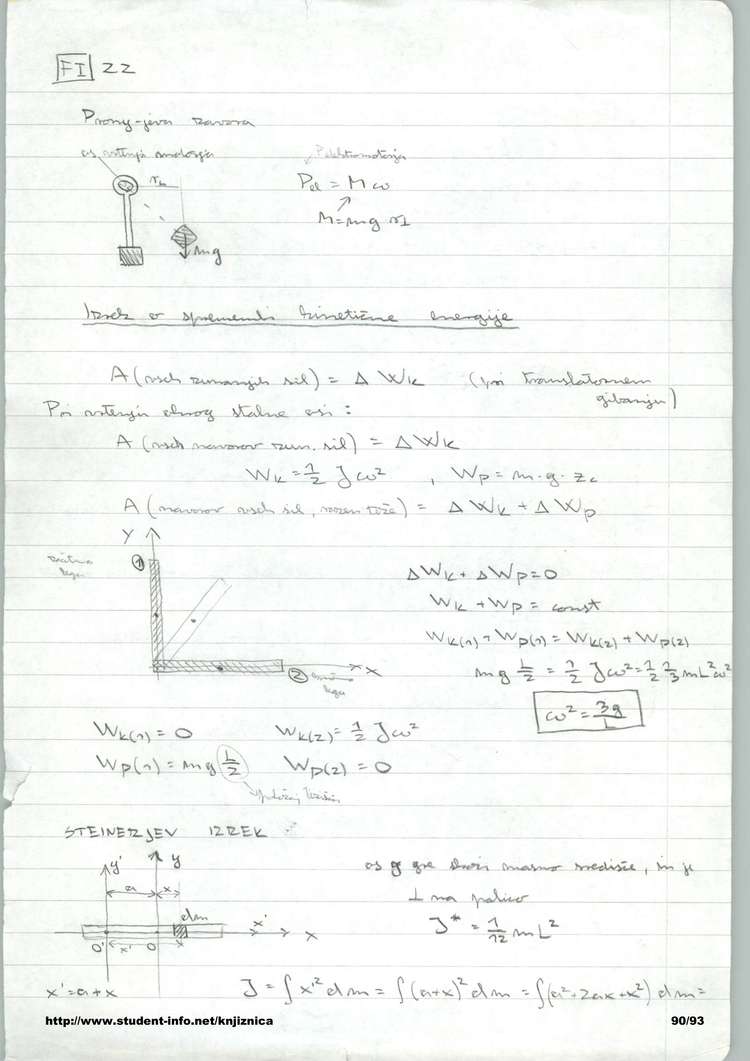 FI 22
Prony-jeva zavora
os vrtenja motorja
r⊥
mg
P elektromotorja
Pel = M ω
M = mg r⊥
Izrek o spremembi kinetične energije
A (vseh zunanjih sil) = Δ Wk (pri translatornem
gibanju)
Pri vrtenju okrog stalne osi :
A (vseh navorov zun. sil) = ΔWk
Wk = 1/2 Jω² , Wp = m·g·zc
A (navorov vseh sil, razen teže) = ΔWk + ΔWp
Y
začetna
lega
1
x
2 končna
lega
ΔWk + ΔWp = 0
Wk + Wp = const
Wk(1) + Wp(1) = Wk(2) + Wp(2)
mg L/2 = 1/2 Jω² = 1/2 1/3 mL²ω²
ω² = 3g/L
Wk(1) = 0 Wk(2) = 1/2 Jω²
Wp(1) = mg L/2 Wp(2) = 0
položaj težišča
STEINERJEV IZREK
y' y
a x
dm
x' x
O' x' O
x' = a + x
os y gre skozi masno središče, in je
⊥ na palico
J* = 1/12 mL²
J = ∫ x'² dm = ∫(a+x)² dm = ∫(a²+2ax+x²) dm =
http://www.student-info.net/knjiznica 90/93